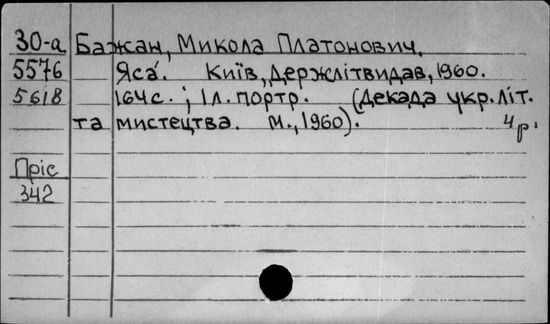 30-а Бажан, Микола Платонович.
5576 Яса. Київ, Держлітвидав, 1960.
5618 164с. ; 1л. портр. (Декада укр. літ.
та мистецтва. М., 1960). 4р.
Пріс
342